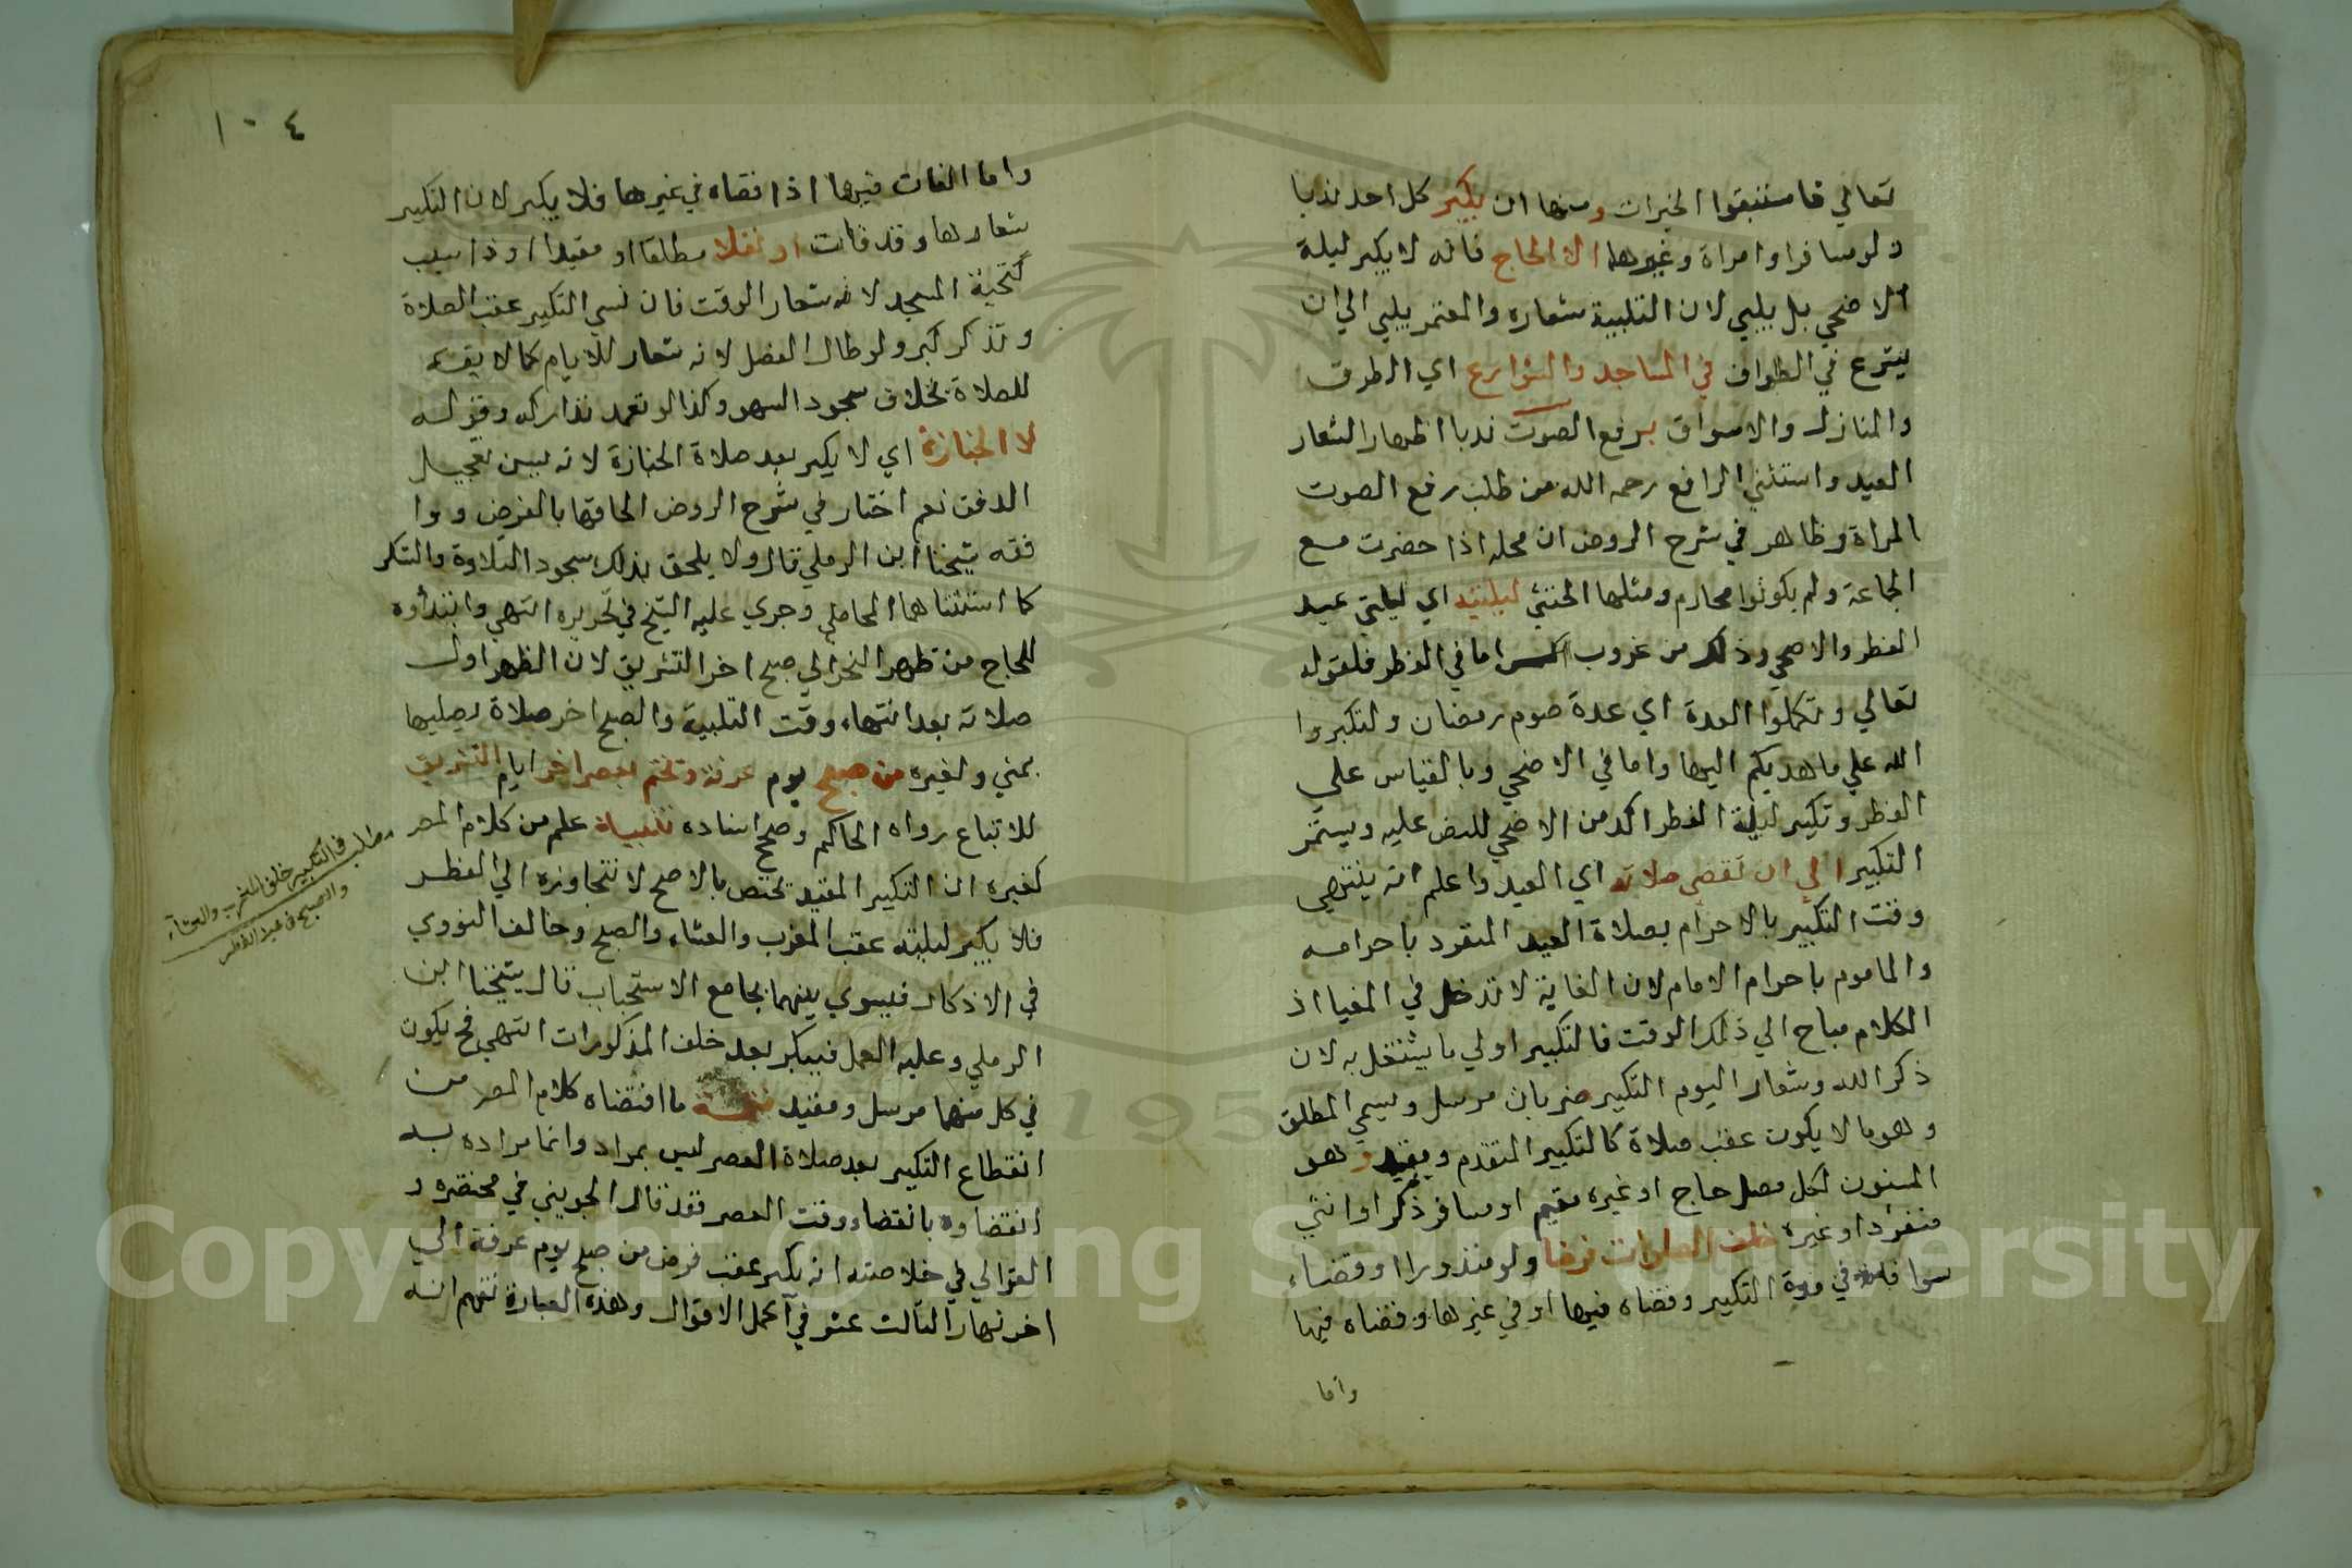 تعالي فاستبقوا الخيرات ومنها ان يكبر كل احد ندبا
ولو مسافرا وامراة وغيرهما الا الحاج فانه لا يكبر ليلة
الاضحي بل يلبي لان التلبية شعاره والمعتمر يلبي الي ان
يشرع في الطواف في المساجد والشوارع اي الطرق
والمنازل والاسواق برفع الصوت ندبا اظهارا لشعار
العيد واستثني الرافع رحمه الله من طلب رفع الصوت
المراة وظاهر في شرح الروض ان محله اذا حضرت مع
الجماعة ولم يكونوا محارم ومثلها الخنثي ليلتيه اي ليلتي عيد
الفطر والاضحي وذلك من غروب اما في الفطر فلقوله
تعالي ولتكملوا العدة اي عدة صوم رمضان ولتكبروا
الله علي ما هديكم اليها واما في الاضحي وبالقياس علي
الفطر وتكبير ليلة الفطر اكد من الاضحي للنص عليه ويستمر
التكبير الي ان تقضي صلاته اي العيد واعلم انه ينتهي
وقت التكبير بالاحرام بصلاة العيد المنفرد باحرامه
والماموم باحرام الامام لان الغاية لا تدخل في المغيا اذ
الكلام مباح الي ذلك الوقت فالتكبير اولي ما يشتغل به لان
ذكر الله وشعار اليوم التكبير ضربان مرسل ويسمي المطلق
وهو ما لا يكون عقب صلاة كالتكبير المتقدم ومقيد وهو
المسنون لكل مصل حاج او غيره مقيم او مسافر ذكر او انثي
منفردا او غيره خلف الصلوات فرضا ولو منذورا او قضاء
سوا فاته في مدة التكبير وقضاه فيها او في غيرها وقضاه فيها
واما
١٠٤
واما الفات فيها اذا قضاه في غيرها فلا يكبر لان التكبير
شعارها وقد فات او نفلا مطلقا او مقيدا او ذا سبب
كتحية المسجد لانه شعار الوقت فان نسي التكبير عقب الصلاة
وتذكر كبر ولو طال الفصل لانه شعار للايام كما لا يقسم
للصلاة بخلاف سجود السهو وكذا لو تعمد تداركه وقوله
لا الجنازة اي لا يكبر بعد صلاة الجنازة لانه يسن تعجيل
الدفن نعم اختار في شرح الروض الحاقها بالفرض ووا
فقه شيخنا ابن الرملي قال ولا يلحق بذلك سجود التلاوة والشكر
كما استثناهما المحاملي وجري عليه الشيخ في تحريره انتهي وابتداوه
للحاج من ظهر النحر الي صبح اخر التشريق لان الظهر اول
صلاته بعد انتهاء وقت التلبية والصبح اخر صلاة يصليها
بمني ولغيره من صبح يوم عرفة وتختم بعصر اخر ايام التشريق
للاتباع رواه الحاكم وصحح اسناده تنبيه علم من كلام المص
كغيره ان التكبير المقيد تختص بالاضحي لا تتجاوزه الي الفطر
فلا يكبر ليلته عقب المغرب والعشاء والصبح وخالف النووي
في الاذكار فيسوي بينهما بجامع الاستحباب قال شيخنا ابن
الرملي وعليه العمل فيكبر بعد خلف المذكورات انتهي فح يكون
في كل منهما مرسل ومقيد ما اقتضاه كلام المص من
انقطاع التكبير بعد صلاة العصر ليس بمراد وانما مراده به
انقضاوه بانقضاء وقت العصر فقد قال الجويني في مختصره و
الغزالي في خلاصته انه يكبر عقب فرض من صبح يوم عرفة الي
اخر نهار الثالث عشر في اكمل الاقوال وهذه العبارة تفهم انه
مطلب في التكبير خلف المغرب والعشاء
والصبح في عيد الفطر
Copyright © King Saud University
195